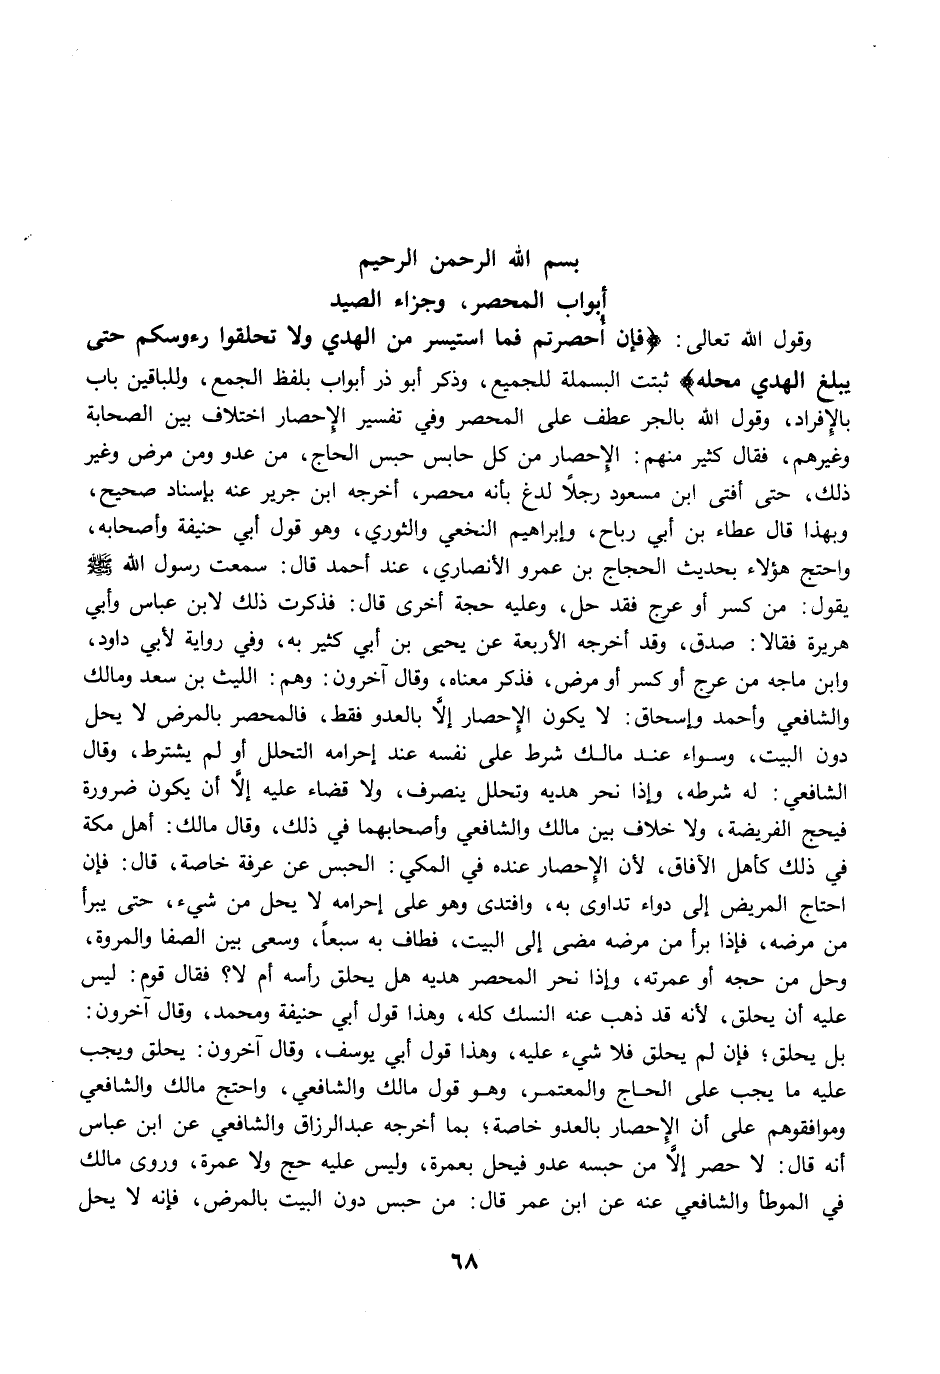 بسم الله الرحمن الرحيم
أبواب المحصر، وجزاء الصيد
وقول الله تعالى: ﴿فإن أُحصرتم فما استيسر من الهدي ولا تحلقوا رءوسكم حتى
يبلغ الهدي محله﴾ ثبتت البسملة للجميع، وذكر أبو ذر أبواب بلفظ الجمع، وللباقين باب
بالإفراد، وقول الله بالجر عطف على المحصر وفي تفسير الإحصار اختلاف بين الصحابة
وغيرهم، فقال كثير منهم: الإحصار من كل حابس حبس الحاج، من عدو ومن مرض وغير
ذلك، حتى أفتى ابن مسعود رجلاً لدغ بأنه محصر، أخرجه ابن جرير عنه بإسناد صحيح،
وبهذا قال عطاء بن أبي رباح، وإبراهيم النخعي والثوري، وهو قول أبي حنيفة وأصحابه،
واحتج هؤلاء بحديث الحجاج بن عمرو الأنصاري، عند أحمد قال: سمعت رسول الله ﷺ
يقول: من كسر أو عرج فقد حل، وعليه حجة أخرى قال: فذكرت ذلك لابن عباس وأبي
هريرة فقالا: صدق، وقد أخرجه الأربعة عن يحيى بن أبي كثير به، وفي رواية لأبي داود،
وابن ماجه من عرج أو كسر أو مرض، فذكر معناه، وقال آخرون: وهم: الليث بن سعد ومالك
والشافعي وأحمد وإسحاق: لا يكون الإحصار إلَّا بالعدو فقط، فالمحصر بالمرض لا يحل
دون البيت، وسواء عند مالك شرط على نفسه عند إحرامه التحلل أو لم يشترط، وقال
الشافعي: له شرطه، وإذا نحر هديه وتحلل ينصرف، ولا قضاء عليه إلَّا أن يكون ضرورة
فيحج الفريضة، ولا خلاف بين مالك والشافعي وأصحابهما في ذلك، وقال مالك: أهل مكة
في ذلك كأهل الآفاق، لأن الإحصار عنده في المكي: الحبس عن عرفة خاصة، قال: فإن
احتاج المريض إلى دواء تداوى به، وافتدى وهو على إحرامه لا يحل من شيء، حتى يبرأ
من مرضه، فإذا برأ من مرضه مضى إلى البيت، فطاف به سبعاً، وسعى بين الصفا والمروة،
وحل من حجه أو عمرته، وإذا نحر المحصر هديه هل يحلق رأسه أم لا؟ فقال قوم: ليس
عليه أن يحلق، لأنه قد ذهب عنه النسك كله، وهذا قول أبي حنيفة ومحمد، وقال آخرون:
بل يحلق؛ فإن لم يحلق فلا شيء عليه، وهذا قول أبي يوسف، وقال آخرون: يحلق ويجب
عليه ما يجب على الحاج والمعتمر، وهو قول مالك والشافعي، واحتج مالك والشافعي
وموافقوهم على أن الإحصار بالعدو خاصة؛ بما أخرجه عبدالرزاق والشافعي عن ابن عباس
أنه قال: لا حصر إلَّا من حبسه عدو فيحل بعمرة، وليس عليه حج ولا عمرة، وروى مالك
في الموطأ والشافعي عنه عن ابن عمر قال: من حبس دون البيت بالمرض، فإنه لا يحل
٦٨